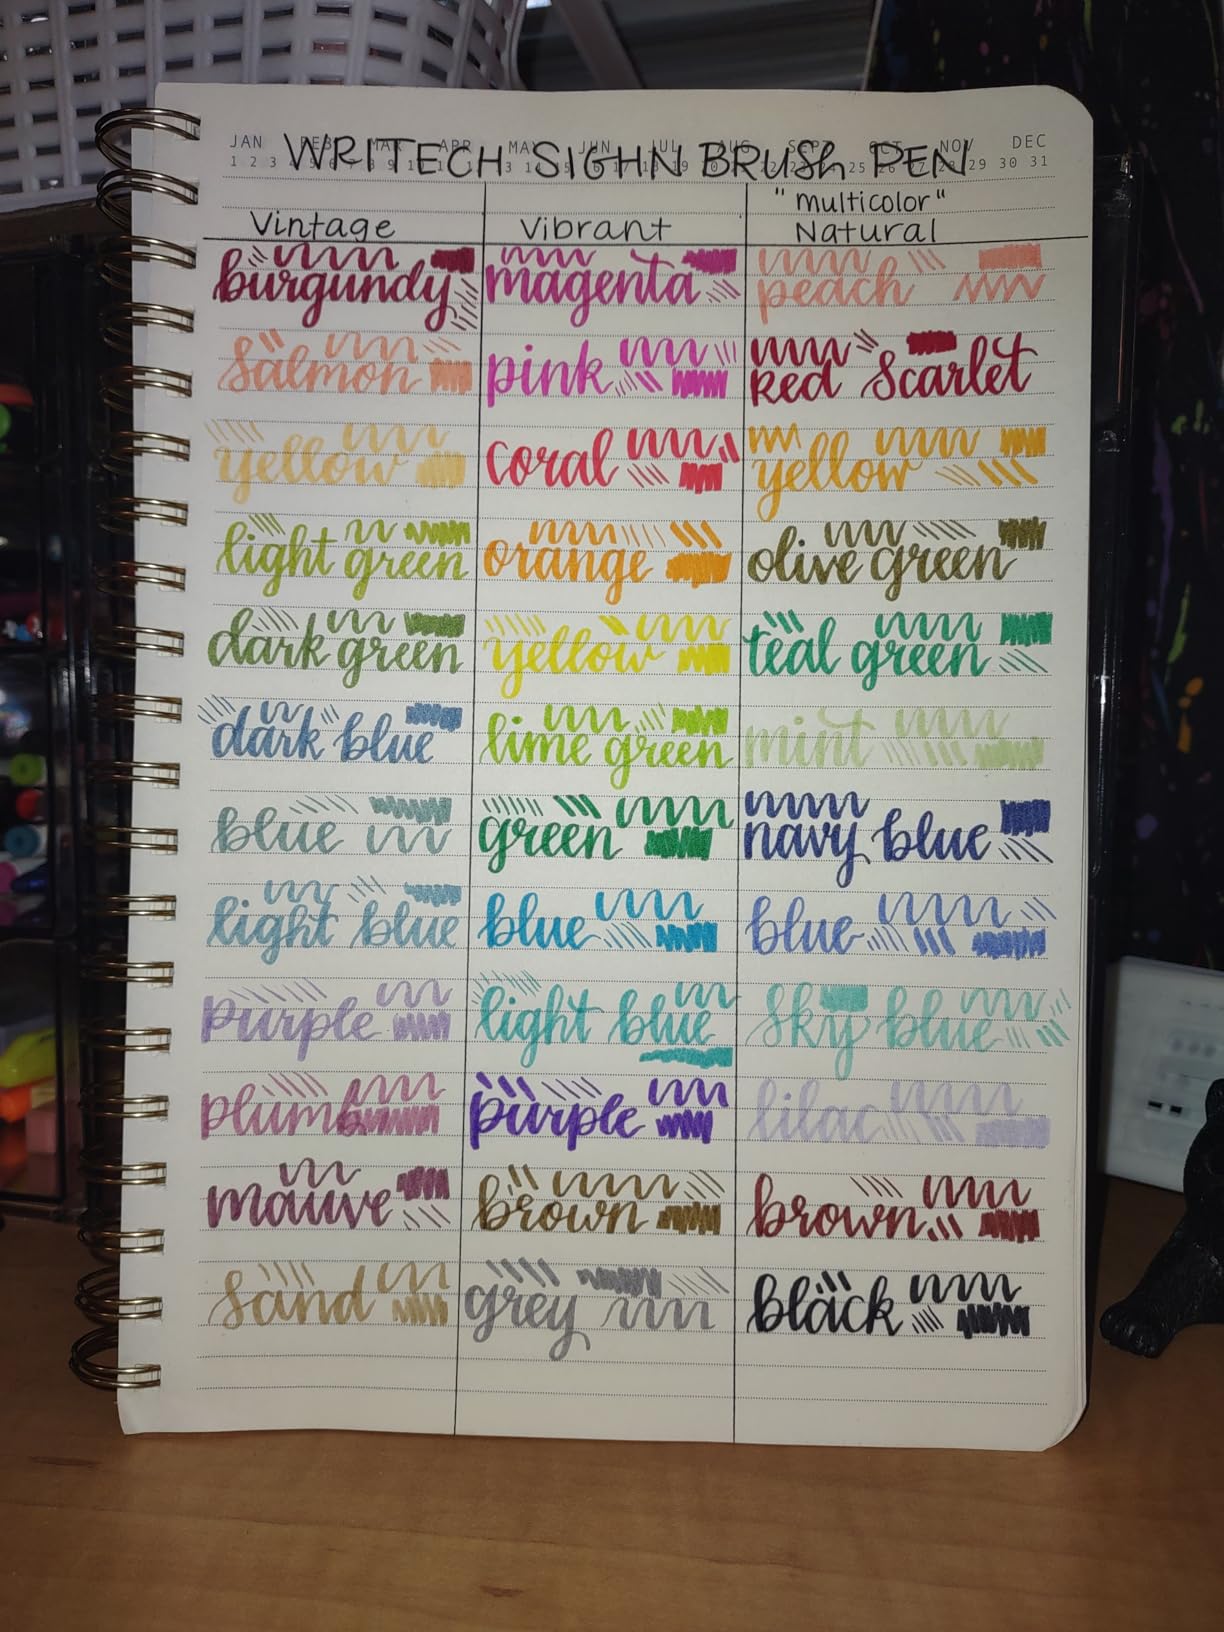 JAN FEB MAR APR MAY JUN JUL AUG SEP OCT NOV DEC
1 2 3 25 28 29 30 31
WRITECH SIGHN BRUSh PEN
"multicolor"
Vintage Vibrant Natural
burgundy magenta peach
salmon pink red scarlet
yellow coral yellow
light green orange olive green
dark green yellow teal green
dark blue lime green mint
blue green navy blue
light blue blue blue
purple light blue sky blue
plumb purple lilac
mauve brown brown
sand grey black